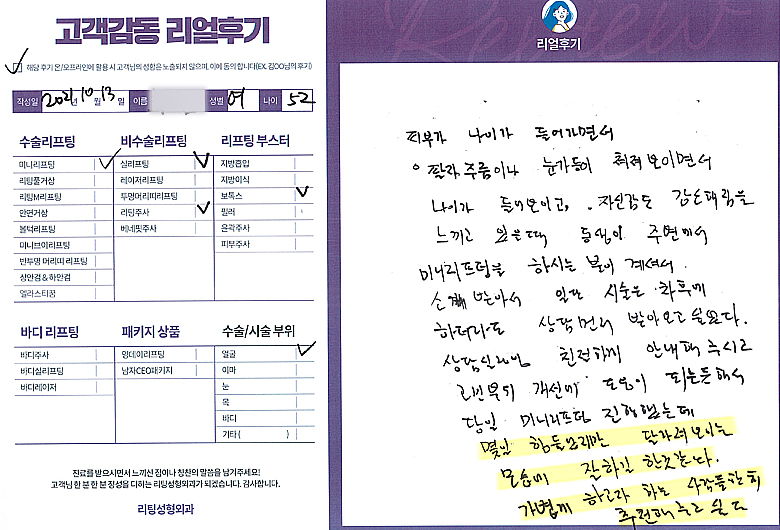 고객감동 리얼후기
해당 후기 온/오프라인에 활용 시 고객님의 성함은 노출되지 않으며, 이에 동의 합니다(EX. 김OO님의 후기)
작성일 2021년 10월 13일 이름 성별 여 나이 52
수술리프팅
미니리프팅
리팅풀거상
리팅M리프팅
안면거상
볼턱리프팅
미니브이리프팅
반투명 머리띠 리프팅
상안검 & 하안검
엘라스티꿈
비수술리프팅
실리프팅
레이저리프팅
투명머리띠리프팅
리팅주사
베네핏주사
리프팅 부스터
지방흡입
지방이식
보톡스
필러
윤곽주사
피부주사
바디 리프팅
바디주사
바디실리프팅
바디레이저
패키지 상품
앙데이리프팅
남자CEO패키지
수술/시술 부위
얼굴
이마
눈
목
바디
기타 ( )
진료를 받으시면서 느끼신 점이나 칭찬의 말씀을 남겨주세요!
고객님 한 분 한 분 정성을 다하는 리팅성형외과가 되겠습니다. 감사합니다.
리팅성형외과
Review
리얼후기
피부가 나이가 들어가면서
팔자 주름이나 눈가등이 쳐져 보이면서
나이가 들어보이고, 자신감도 감소해짐을
느끼고 있을때 동생이 주변에서
미니리프팅을 하시는 분이 계셔서
소개 받아서 일단 시술은 차후에
하더라도 상담먼저 받아보고 싶었다.
상담실장님 친절하게 안내해 주시고
고민부위 개선에 도움이 되는듯해서
당일 미니리프팅 진행했는데
몇일 힘들었지만 달라져 보이는
모습에 잘하길 한것같다.
가볍게 하고자 하는 사람들한테
추천해 주고 싶다